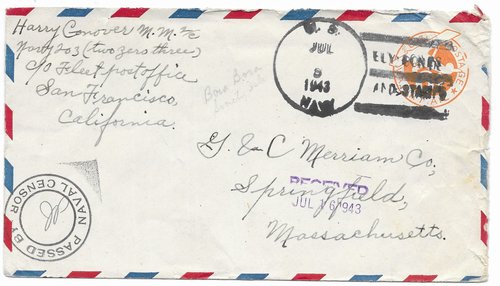 Harry Conover M.M.2/c
Navy 203 (two zero three)
c/o Fleet post office
San Francisco,
California.
Bora Bora
U. S.
JUL
5
1943
NAVY
BUY BONDS
AND STAMPS
POSTAGE
G. & C Merriam Co,
Springfield,
Massachusetts.
RECEIVED
JUL 16 1943
PASSED BY
NAVAL CENSOR